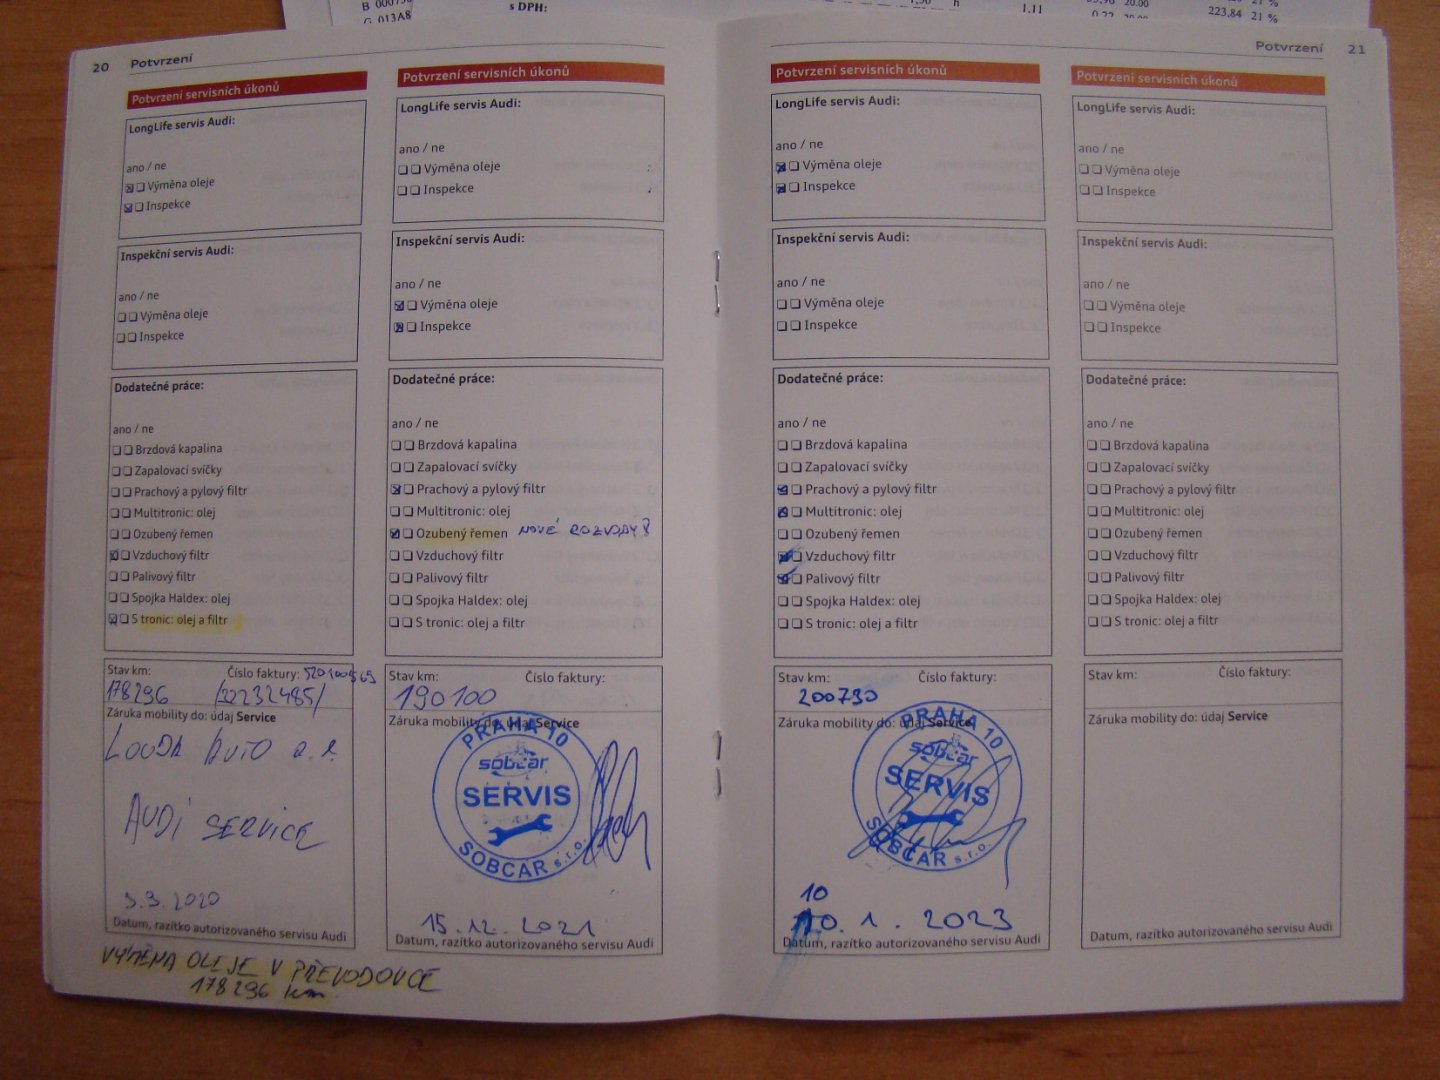 s DPH:
1.11
223,84 21 %
G 013A8
20 Potvrzení
Potvrzení servisních úkonů
LongLife servis Audi:
ano / ne
Výměna oleje
Inspekce
Inspekční servis Audi:
ano / ne
Výměna oleje
Inspekce
Dodatečné práce:
ano / ne
Brzdová kapalina
Zapalovací svíčky
Prachový a pylový filtr
Multitronic: olej
Ozubený řemen
Vzduchový filtr
Palivový filtr
Spojka Haldex: olej
S tronic: olej a filtr
Stav km: Číslo faktury:
178296 /22232485/
Záruka mobility do: údaj Service
LOUDA AUTO a.s.
AUDI SERVICE
3.3.2020
Datum, razítko autorizovaného servisu Audi
VÝMĚNA OLEJE V PŘEVODOVCE
178296 km.
Potvrzení servisních úkonů
LongLife servis Audi:
ano / ne
Výměna oleje
Inspekce
Inspekční servis Audi:
ano / ne
Výměna oleje
Inspekce
Dodatečné práce:
ano / ne
Brzdová kapalina
Zapalovací svíčky
Prachový a pylový filtr
Multitronic: olej
Ozubený řemen NOVÉ ROZVODY!
Vzduchový filtr
Palivový filtr
Spojka Haldex: olej
S tronic: olej a filtr
Stav km: Číslo faktury:
190100
Záruka mobility do: údaj Service
PRAHA 10
sobcar
SERVIS
SOBCAR s.r.o.
15.12.2021
Datum, razítko autorizovaného servisu Audi
Potvrzení 21
Potvrzení servisních úkonů
LongLife servis Audi:
ano / ne
Výměna oleje
Inspekce
Inspekční servis Audi:
ano / ne
Výměna oleje
Inspekce
Dodatečné práce:
ano / ne
Brzdová kapalina
Zapalovací svíčky
Prachový a pylový filtr
Multitronic: olej
Ozubený řemen
Vzduchový filtr
Palivový filtr
Spojka Haldex: olej
S tronic: olej a filtr
Stav km: Číslo faktury:
200730
Záruka mobility do: údaj Service
PRAHA 10
sobcar
SERVIS
SOBCAR s.r.o.
10
10.1.2023
Datum, razítko autorizovaného servisu Audi
Potvrzení servisních úkonů
LongLife servis Audi:
ano / ne
Výměna oleje
Inspekce
Inspekční servis Audi:
ano / ne
Výměna oleje
Inspekce
Dodatečné práce:
ano / ne
Brzdová kapalina
Zapalovací svíčky
Prachový a pylový filtr
Multitronic: olej
Ozubený řemen
Vzduchový filtr
Palivový filtr
Spojka Haldex: olej
S tronic: olej a filtr
Stav km: Číslo faktury:
Záruka mobility do: údaj Service
Datum, razítko autorizovaného servisu Audi